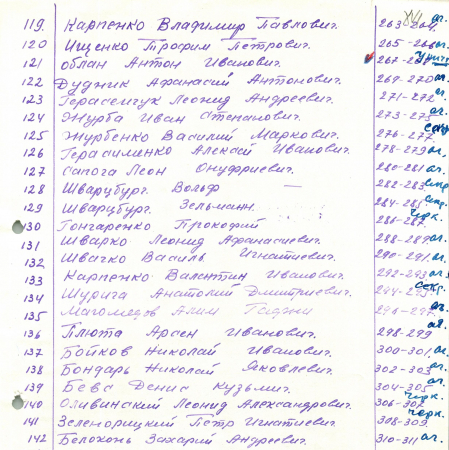 119. Карпенко Владимир Павлович. 263-264. аг.
120 Ищенко Трофим Петрович. 265-266 аг.
121 облан Антон Иванович. 267-
122 Дудник Афанасий Антонович. 269-270 аг.
123 Герасемчук Леонид Андреевич. 271-272 аг.
124 Журба Иван Степанович. 273-275 аг.
125 Журбенко Василий Маркович. 276-277.
126 Герасименко Алексей Иванович. 278-279 аг.
127 Сапога Леон Онуфриевич. 280-281 аг.
128 Шварцбург. Вольф — 282-283.
129 Шварцбург. Зельманн. 284-285.
130 Гонгаренко Прокофий 286-287.
131 Шварко Леонид Афанасиевич. 288-289 аг.
132 Швагко Василь Игнатиевич. 290-291. аг.
133 Карпенко Валентин Иванович. 292-293 аг.
134 Шурига Анатолий Дмитриевич. 294-295.
135 Магомедов Алим Гаджи 296-297. аг.
136 Плюта Арсен Иванович. 298-299 аг.
137 Бойков Николай Иванович. 300-301. аг.
138 Бондарь Николай Яковлевич. 302-303 аг.
139 Бева Денис Кузьмич. 304-305 аг.
140 Оливинский Леонид Александрович. 306-307 черк.
141 Зеленорицкий Петр Игнатиевич. 308-309. черк.
142 Белоконь Захарий Андреевич. 310-311 аг.